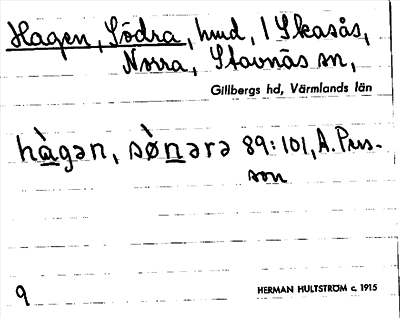 Hagen, Södra, hmd, l Skasås,
Norra, Stavnäs sn,
Gillbergs hd, Värmlands län
hàgən, sø̀nərə 89:101, A. Pers-
son
9
HERMAN HULTSTRÖM c. 1915